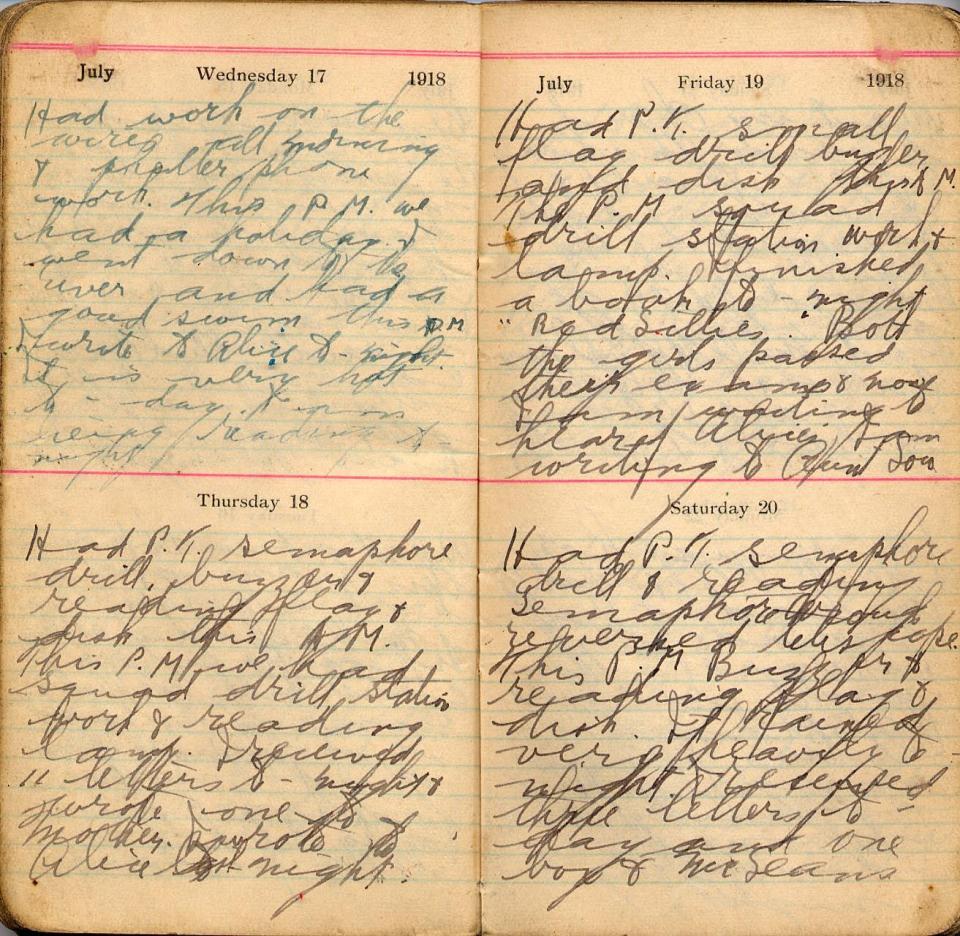 July Wednesday 17 1918
Had work on the
wires all morning
& phone
work. This P.M. we
had a holiday &
went down to the
river and had a
good swim this P.M
wrote to Alice to-night.
It is very hot
to-day. I am
reading to-
night
Thursday 18
Had P.T. semaphore
drill, buzzing
reading flag &
disk this A.M.
This P.M we had
squad drill, station
work & reading
lamp. I received
11 letters to-night &
wrote one to
Mother. I wrote to
Alice to-night.
July Friday 19 1918
Had P.T. small
flag drill buzzer
and disk this A M.
The P.M. squad
drill station work &
lamp. Finished
a book to-night
"Red Lillies." Both
the girls passed
their exams & now
I am waiting to
hear Alice, I am
writing to Aunt Lou
Saturday 20
Had P.T. semaphore
drill & reading
semaphore through
reversed telescope.
This P.M Buzzer &
reading flag &
disk. It rained
very heavily to
night. I received
three letters to
day and one
box &